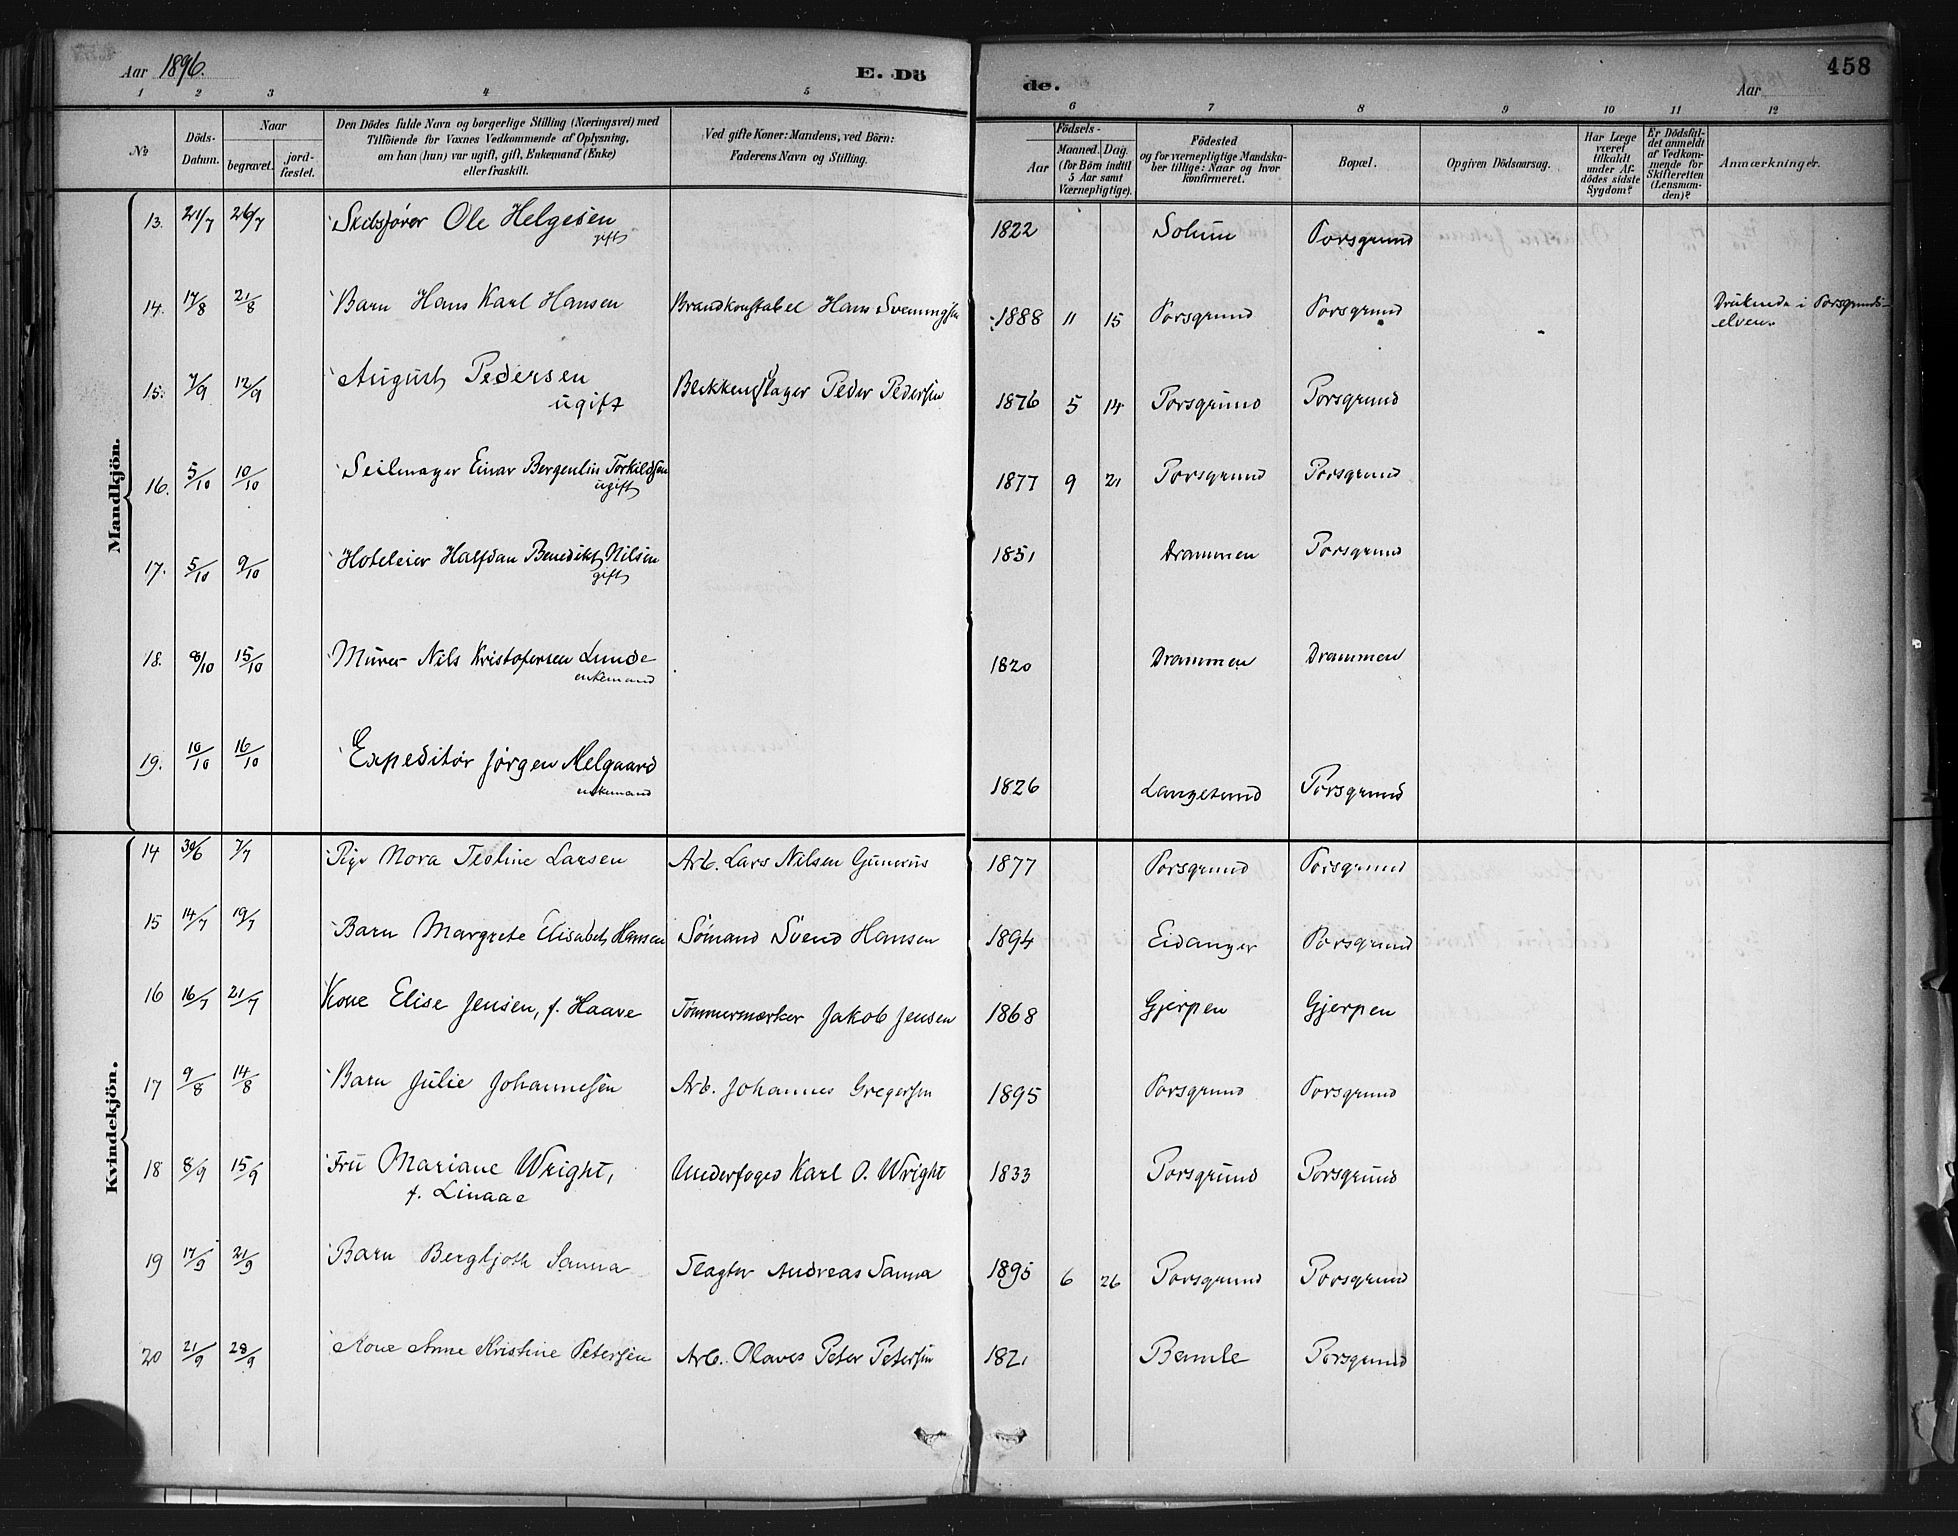 Aar 1896. E. Dö
de. Aar 458
1 2 3 4 5 6 7 8 9 10 11 12
№ Döds-Datum. Naar begravet. jord-fæstet. Den Dödes fulde Navn og borgerlige Stilling (Næringsvei) med Tilföiende for Voxnes Vedkommende af Oplysning, om han (hun) var ugift, gift, Enkemand (Enke) eller fraskilt. Ved gifte Koner: Mandens, ved Börn: Faderens Navn og Stilling. Födsels- Aar Maaned. Dag. (for Börn indtil 5 Aar samt Værnepligtige). Födested og for værnepligtige Mandska-ber tillige: Naar og hvor konfirmeret. Bopæl. Opgiven Dödsaarsag. Har Læge været tilkaldt under Af-dödes sidste Sygdom? Er Dödsfal-det anmeldt af Vedkom-mende for Skifteretten (Lensman-den)? Anmærkninger.
Mandkjön.
13. 21/7 26/7 Skibsfører Ole Helgesen 1822 Solum Porsgrund
gift
14. 17/8 21/8 Barn Hans Karl Hansen Brandkonstabel Hans Svenningsen 1888 11 15 Porsgrund Porsgrund Druknede i Porsgrunds-
elven.
15. 7/9 12/9 August Pedersen Blikkenslager Peder Pedersen 1876 5 14 Porsgrund Porsgrund
ugift
16. 5/10 10/10 Seilmager Einar Bergentin Torkildsen 1877 9 21 Porsgrund Porsgrund
ugift
17. 5/10 9/10 Hoteleier Halfdan Benedikt Nilsen 1851 Drammen Porsgrund
gift
18. 8/10 15/10 Murer Nils Kristofersen Lunde 1820 Drammen Drammen
enkemand
19. 10/10 16/10 Expeditør Jørgen Melgaard 1826 Langesund Porsgrund
enkemand
Kvindekjön.
14 30/6 7/7 Pige Nora Teoline Larsen Arb. Lars Nilsen Gunerius 1877 Porsgrund Porsgrund
15 14/7 19/7 Barn Margrete Elisabet Hansen Sømand Svend Hansen 1894 Eidanger Porsgrund
16 16/7 21/7 Kone Elise Jensen, f. Haave Tømmermærker Jakob Jensen 1868 Gjerpen Gjerpen
17 9/8 14/8 Barn Julie Johannesen Arb. Johannes Gregersen 1895 Porsgrund Porsgrund
18 8/9 15/9 Fru Mariane Wright, Underfoged Karl O. Wright 1833 Porsgrund Porsgrund
f. Linaae
19 17/9 21/9 Barn Bergljoth Sanna Slagter Andreas Sanna 1895 6 26 Porsgrund Porsgrund
20 21/9 28/9 Kone Anne Kristine Petersen Arb. Olaves Peter Petersen 1821 Bamle Porsgrund